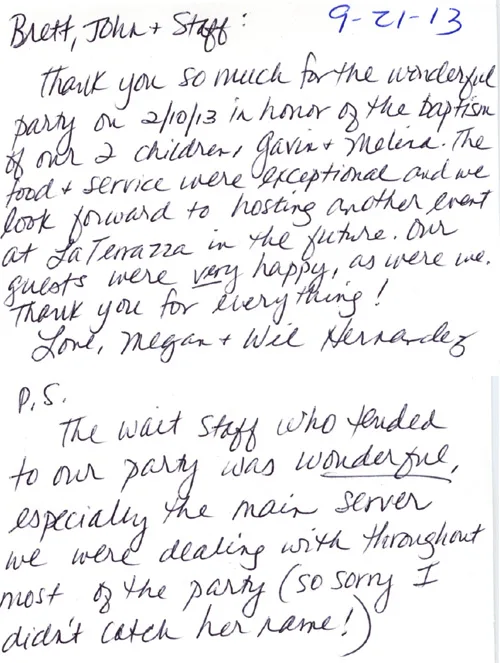 Brett, John + Staff: 9-21-13
Thank you so much for the wonderful
party on 2/10/13 in honor of the baptism
of our 2 children, Gavin + Melina. The
food + service were exceptional and we
look forward to hosting another event
at LaTerrazza in the future. Our
guests were very happy, as were we.
Thank you for everything!
Love, Megan + Wil Hernandez
P.S.
The wait staff who tended
to our party was wonderful,
especially the main server
we were dealing with throughout
most of the party (so sorry I
didn't catch her name!)